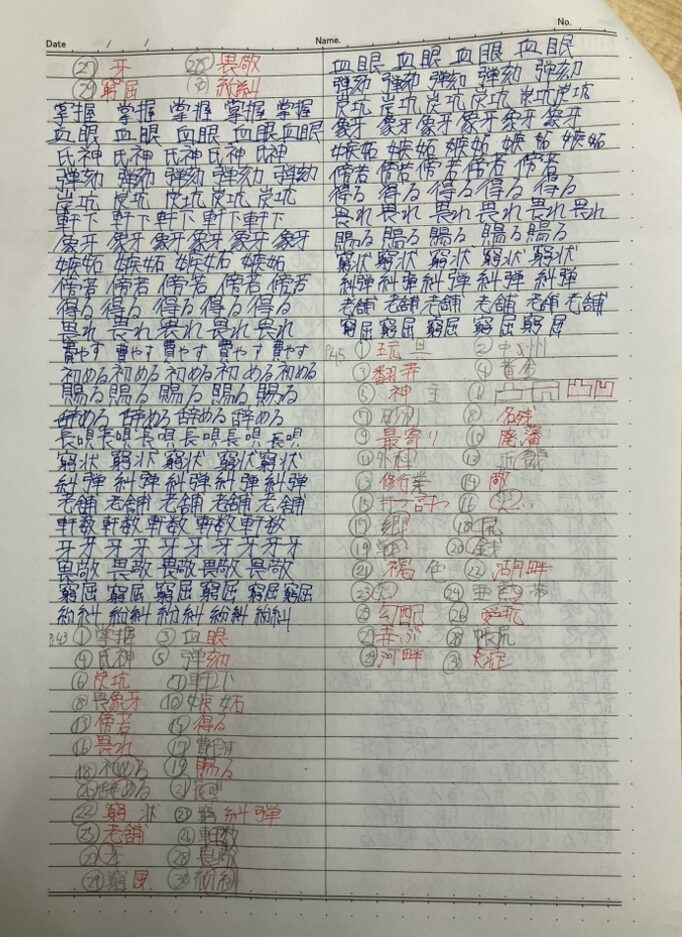 Date / / Name. No.
㉗ 牙 ㉘ 畏敬
㉙ 窮屈 ㉚ 紛糾
掌握 掌握 掌握 掌握 掌握
血眼 血眼 血眼 血眼 血眼
氏神 氏神 氏神 氏神 氏神
弾劾 弾劾 弾劾 弾劾 弾劾
炭坑 炭坑 炭坑 炭坑 炭坑
軒下 軒下 軒下 軒下 軒下
象牙 象牙 象牙 象牙 象牙 象牙
嫉妬 嫉妬 嫉妬 嫉妬 嫉妬
傍若 傍若 傍若 傍若 傍若
得る 得る 得る 得る 得る
畏れ 畏れ 畏れ 畏れ 畏れ
費やす 費やす 費やす 費やす 費やす
初める 初める 初める 初める 初める
賜る 賜る 賜る 賜る 賜る
辞める 辞める 辞める 辞める
長唄 長唄 長唄 長唄 長唄 長唄
窮状 窮状 窮状 窮状 窮状
糾弾 糾弾 糾弾 糾弾 糾弾
老舗 老舗 老舗 老舗 老舗
軒数 軒数 軒数 軒数 軒数
牙 牙 牙 牙 牙 牙 牙 牙 牙
畏敬 畏敬 畏敬 畏敬 畏敬
窮屈 窮屈 窮屈 窮屈 窮屈
紛糾 紛糾 紛糾 紛糾 紛糾
P.43 ① 掌握 ③ 血眼
④ 氏神 ⑤ 弾劾
⑥ 炭坑 ⑦ 軒下
⑧ 象牙 ⑩ 嫉妬
⑬ 傍若 ⑭ 得る
⑯ 畏れ ⑰ 費やす
⑱ 初める ⑲ 賜る
⑳ 辞める ㉑ 長唄
㉒ 窮状 ㉓ 糾弾
㉕ 老舗 ㉖ 軒数
㉗ 牙 ㉘ 畏敬
㉙ 窮屈 ㉚ 紛糾
血眼 血眼 血眼 血眼
弾劾 弾劾 弾劾 弾劾 弾劾
炭坑 炭坑 炭坑 炭坑 炭坑 炭坑
象牙 象牙 象牙 象牙 象牙 象牙
嫉妬 嫉妬 嫉妬 嫉妬 嫉妬
傍若 傍若 傍若 傍若 傍若
得る 得る 得る 得る 得る
畏れ 畏れ 畏れ 畏れ 畏れ 畏れ
賜る 賜る 賜る 賜る 賜る
窮状 窮状 窮状 窮状 窮状
糾弾 糾弾 糾弾 糾弾 糾弾
老舗 老舗 老舗 老舗 老舗 老舗
窮屈 窮屈 窮屈 窮屈 窮屈
P.45 ① 玩具 ② 中州
③ 翻弄 ④ 黄金
⑤ 神主 ⑥ 凸凹
⑦ 砂利 ⑧ 名残
⑨ 最寄り ⑩ 廃藩
⑪ 外科
⑬ 修行 業 ⑭ 敵
⑮ 討つ
⑰ 郷 ⑱ 尻
⑳ 銭
㉑ 褐色 ㉒ 湖畔
㉓ ㉔ 亜
㉕ 勾配 ㉖ 愛玩
㉗ 弄ぶ ㉘ 帳尻
㉙ 河畔